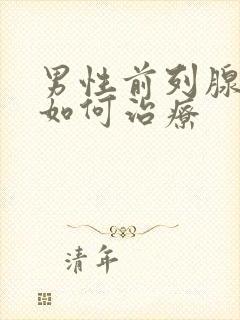 男性前列腺
如何治疗
清年